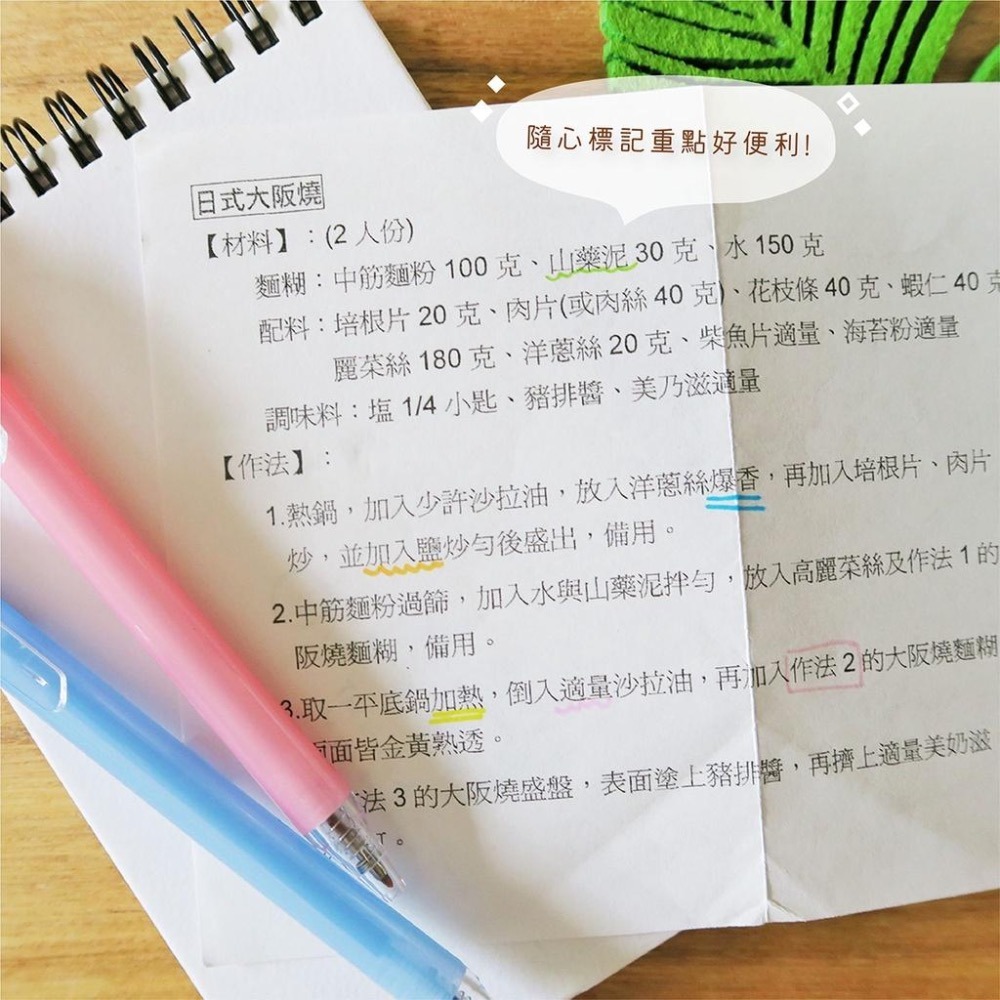 隨心標記重點好便利!
日式大阪燒
【材料】：(2 人份)
麵糊：中筋麵粉 100 克、山藥泥 30 克、水 150 克
配料：培根片 20 克、肉片(或肉絲 40 克)、花枝條 40 克、蝦仁 40 克
麗菜絲 180 克、洋蔥絲 20 克、柴魚片適量、海苔粉適量
調味料：塩 1/4 小匙、豬排醬、美乃滋適量
【作法】：
1.熱鍋，加入少許沙拉油，放入洋蔥絲爆香，再加入培根片、肉片
炒，並加入鹽炒勻後盛出，備用。
2.中筋麵粉過篩，加入水與山藥泥拌勻，放入高麗菜絲及作法 1 的
阪燒麵糊，備用。
3.取一平底鍋加熱，倒入適量沙拉油，再加入作法 2 的大阪燒麵糊
面皆金黃熟透。
法 3 的大阪燒盛盤，表面塗上豬排醬，再擠上適量美奶滋
。